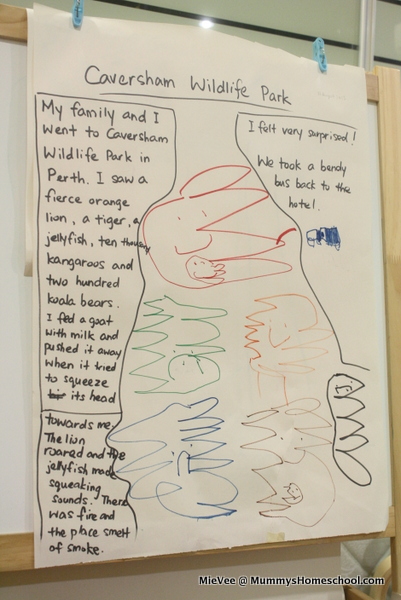 Caversham Wildlife Park
My family and I
went to Caversham
Wildlife Park in
Perth. I saw a
fierce orange
lion, a tiger, a
jellyfish, ten thousand
kangaroos and
two hundred
koala bears.
I fed a goat
with milk and
pushed it away
when it tried
to squeeze
its head
towards me.
The lion
roared and the
jellyfish made
squeaking
sounds. There
was fire and
the place smelt
of smoke.
I felt very surprised!
We took a bendy
bus back to the
hotel.
MieVee @ MummysHomeschool.com